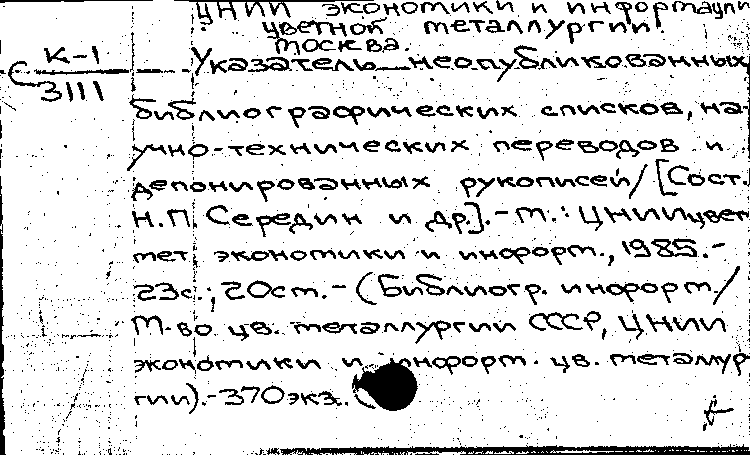 ЦНИИ экономики и информации
цветной металлургии.
Москва.
К-1 Указатель неопубликованных
С 3111
библиографических списков, на-
учно-технических переводов и
депонированных рукописей/[Сост.
Н.П. Середин и др.].-М.: ЦНИИцвет
мет. экономики и информ., 1985.-
23с.; 20см.-(Библиогр. информ/
М-во цв. металлургии СССР, ЦНИИ
экономики и информ. цв. металлур
гии).-370экз.. (